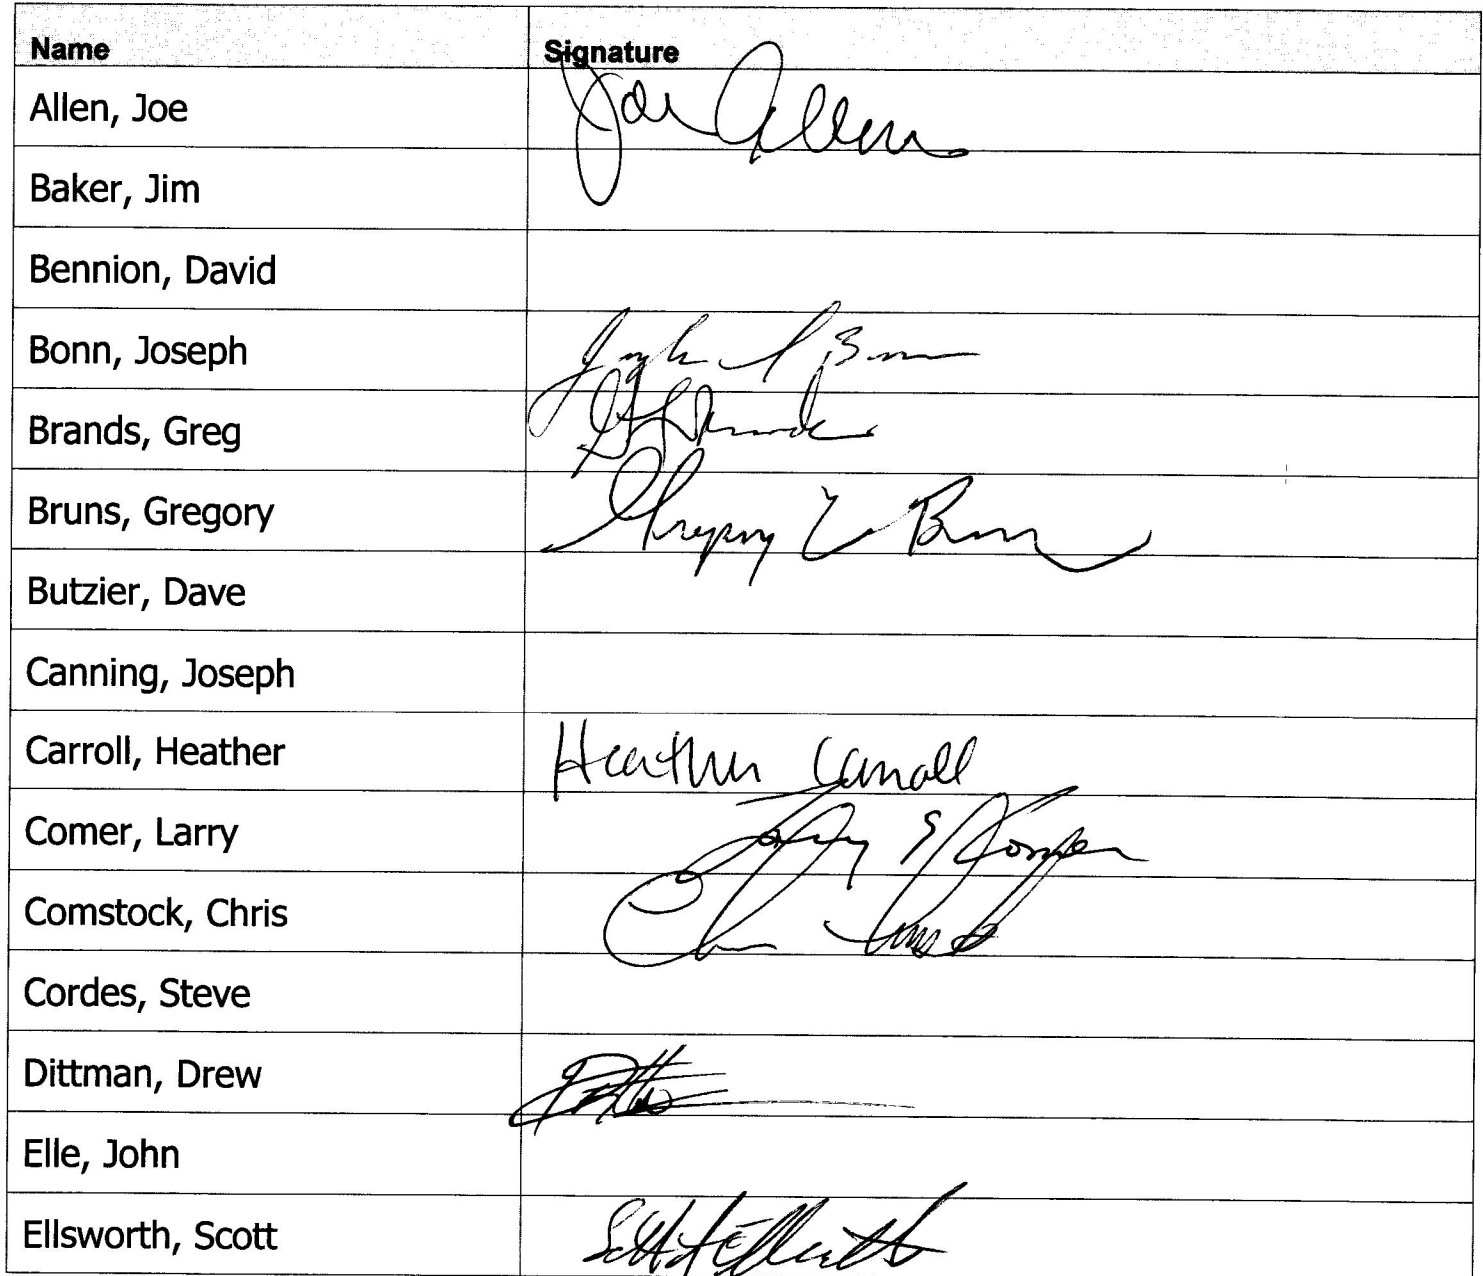 Name Signature
Allen, Joe Joe Allen
Baker, Jim
Bennion, David
Bonn, Joseph Joseph
Brands, Greg
Bruns, Gregory Gregory
Butzier, Dave
Canning, Joseph
Carroll, Heather Heather Carroll
Comer, Larry Larry E
Comstock, Chris
Cordes, Steve
Dittman, Drew
Elle, John
Ellsworth, Scott Scott